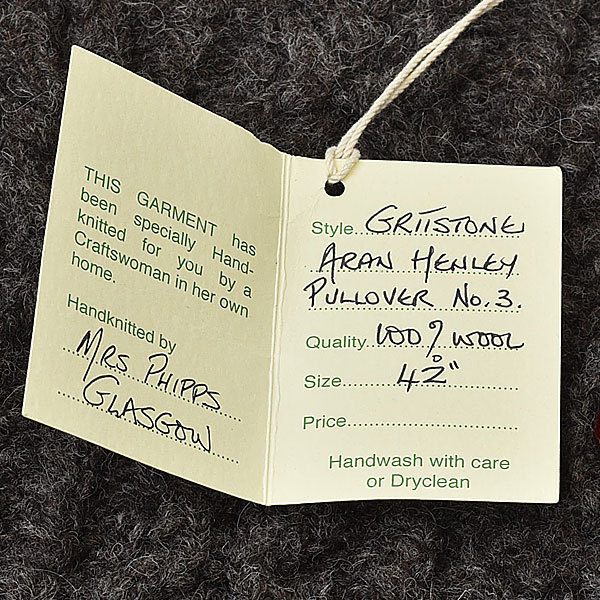 THIS GARMENT has
been specially Hand-
knitted for you by a
Craftswoman in her own
home.
Handknitted by
MRS PHIPPS
GLASGOW
Style GRITSTONE
ARAN HENLEY
PULLOVER No. 3.
Quality 100% WOOL
Size 42"
Price
Handwash with care
or Dryclean